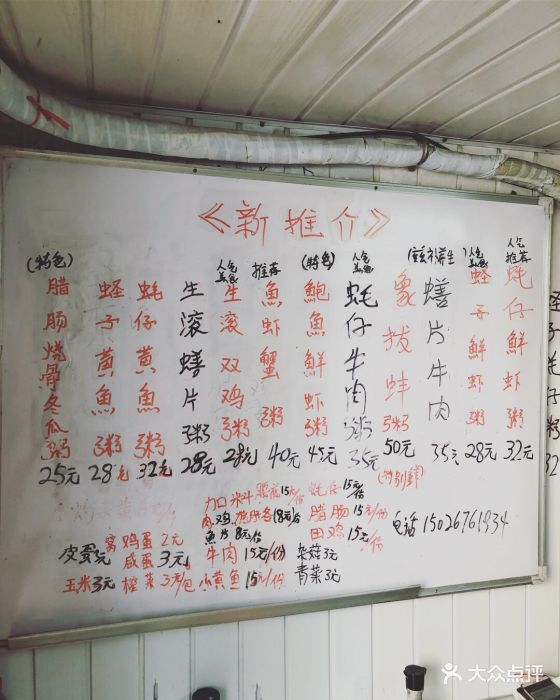 《新推介》
(特色)
腊肠烧骨冬瓜粥 25元
蛏子黄魚粥 28元
蚝仔黄魚粥 32元
生滚鳝片粥 28元
人气美食
生滚双鸡粥 28元
推荐
魚虾蟹粥 40元
(特色)
鲍魚鮮虾粥 45元
人气美食
蚝仔牛肉粥 35元
象拔蚌粥 50元
(特别鲜)
鳝片牛肉 35元
人气
蛏子鮮虾粥 28元
人气推荐
蚝仔鮮虾粥 32元
加口米斗
15元/份
蚝仔 15元/份
肉鸡
18元/份
腊肠 15元/份
魚片 8元/份
田鸡 15元/份
电话 15026761934
窝鸡蛋 2元
皮蛋 元
咸蛋 3元
牛肉 15元/份
杂菇 3元
玉米 3元
榨菜 3元/包
小黄魚 15元/份
青菜 3元
大众点评